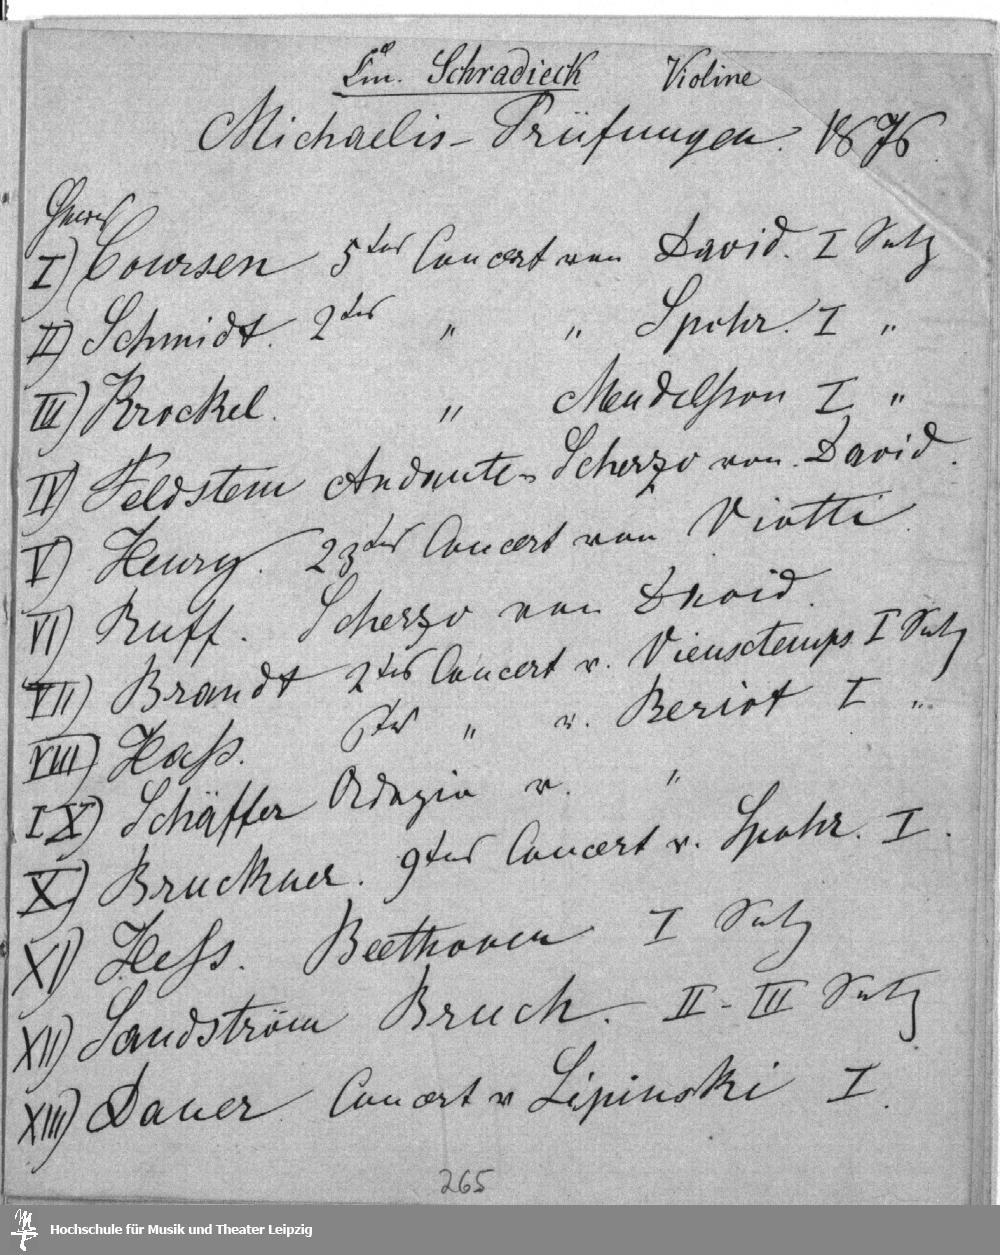 Schradieck Violine
Michaelis-Prüfungen. 1876
Herren
I) Coursen 5tes Concert von David. I Satz
II) Schmidt. 2tes " " Spohr. I "
III) Krockel. " Mendelsson I "
IV) Feldstein Andante-Scherzo von David.
V) Henry. 23tes Concert von Viotti
VI) Ruff. Scherzo von David.
VII) Brandt 2tes Concert v. Vieuxtemps I Satz
VIII) Hass. " v. Beriot I "
IX) Schäffer Adagio v. "
X) Bruckner. 9tes Concert v. Spohr. I.
XI) Hess. Beethoven I Satz
XII) Sandström Bruch. II-III Satz
XIII) Dauer Concert v Lipinski I.
265
Hochschule für Musik und Theater Leipzig